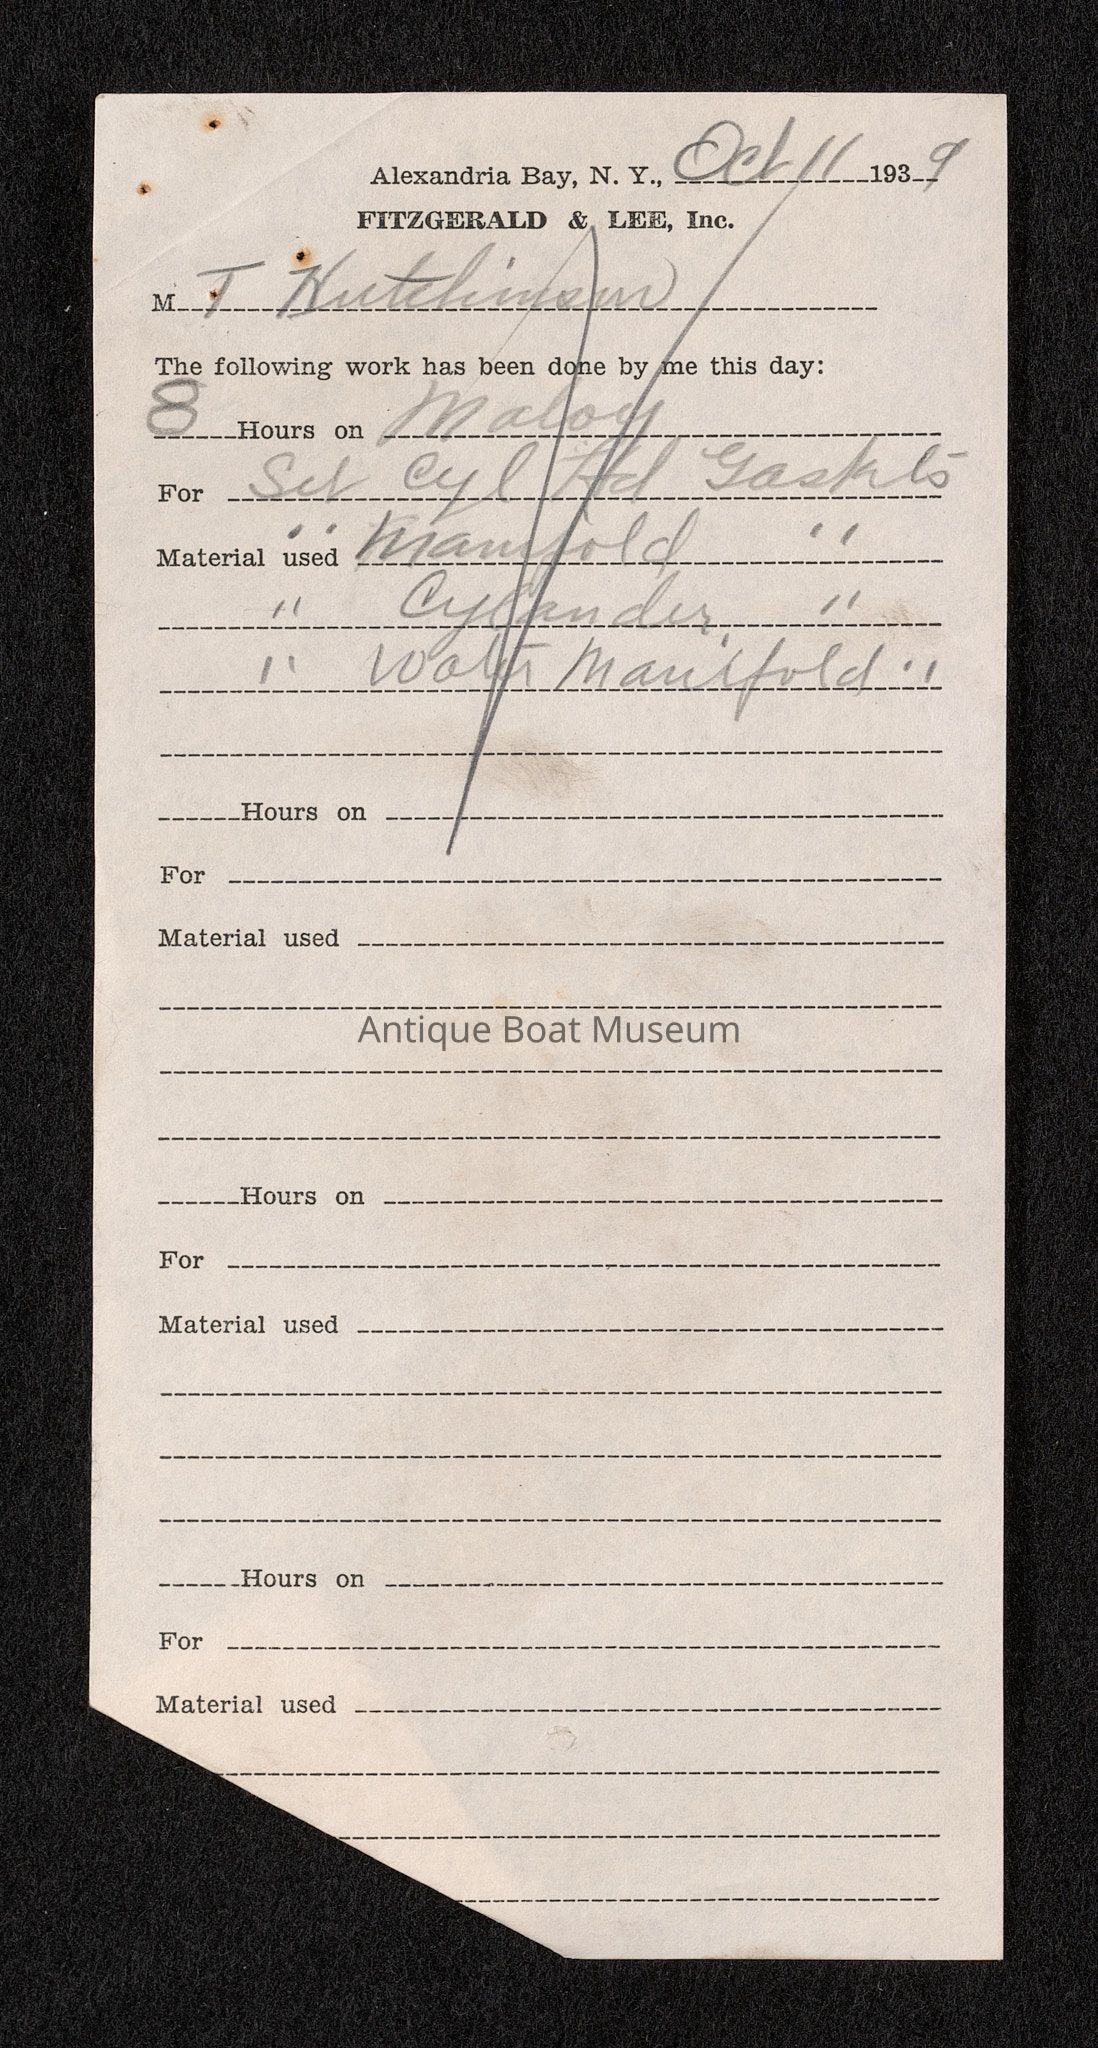 Alexandria Bay, N. Y., Oct 11 1939
FITZGERALD & LEE, Inc.
M T Hutchinson
The following work has been done by me this day:
8 Hours on Maloy
For Set Cyl Hd Gaskets
Material used " Manifold "
" Cylander "
" Water Manifold "
Hours on
For
Material used
Antique Boat Museum
Hours on
For
Material used
Hours on
For
Material used